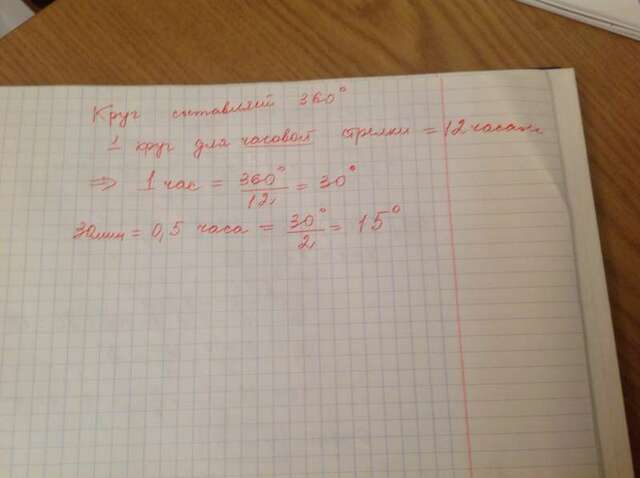 Круг составляет 360°
1 круг для часовой стрелки = 12 часам
⇒ 1 час = 360°/12 = 30°
30мин = 0,5 часа = 30°/2 = 15°